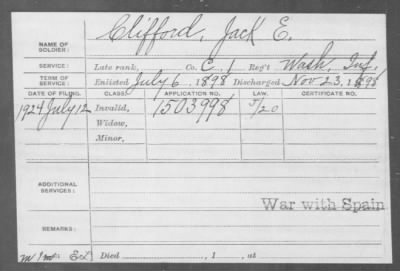 Clifford, Jack E.
NAME OF SOLDIER:
SERVICE: Late rank, Co. C, 1 Reg't Wash. Inf.
TERM OF SERVICE: Enlisted July 6, 1898 Discharged Nov 23, 1898
DATE OF FILING. CLASS. APPLICATION NO. LAW. CERTIFICATE NO.
1924 July 12 Invalid, 1503998 5/20
Widow,
Minor,
ADDITIONAL SERVICES:
War with Spain
REMARKS:
Died , 1 , at